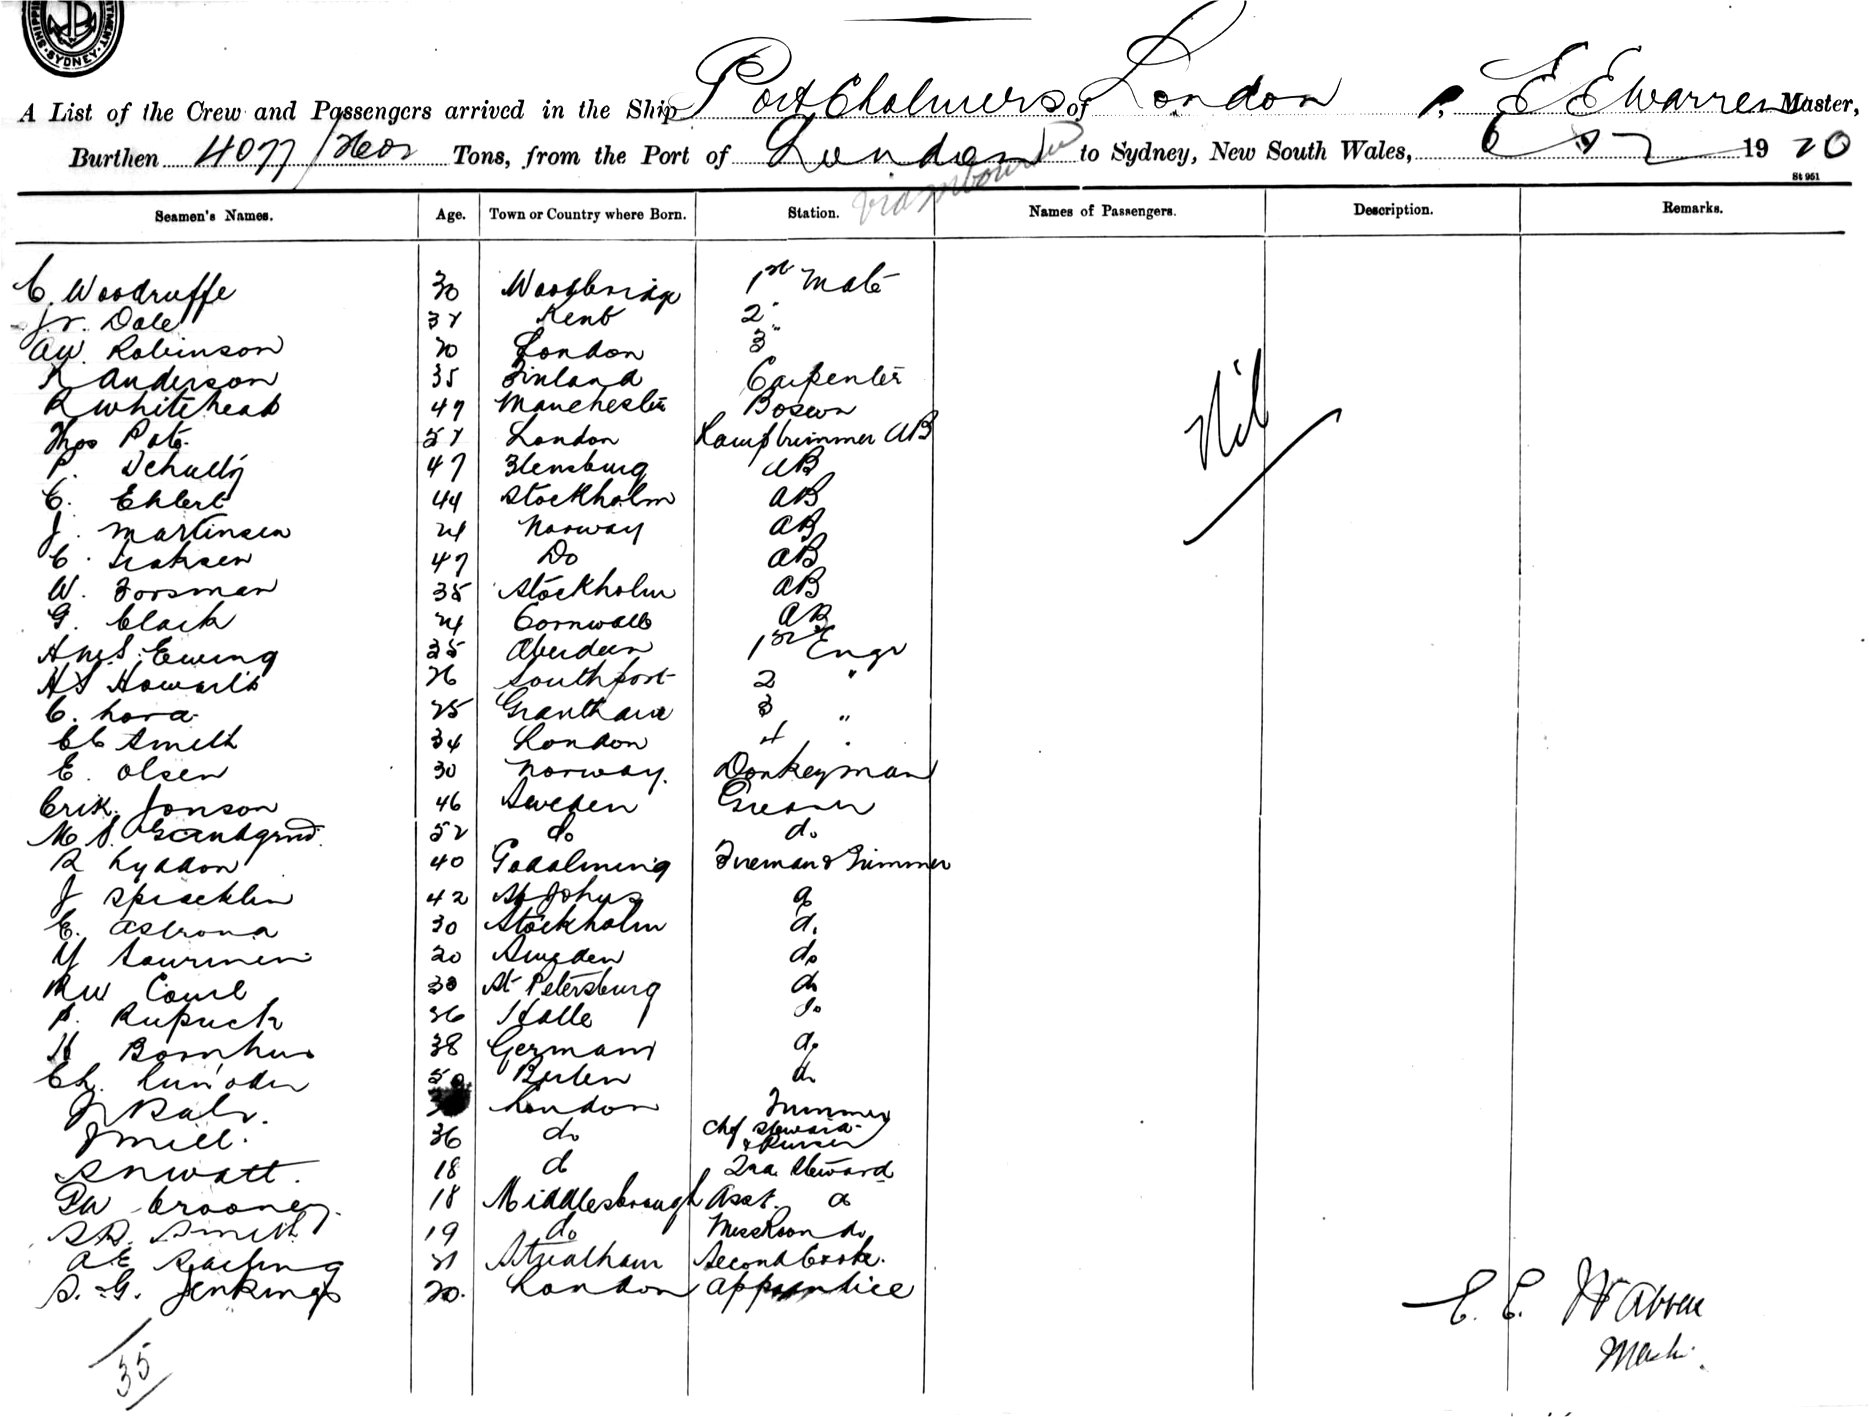 SHIPPING DEPARTMENT SYDNEY
A List of the Crew and Passengers arrived in the Ship Port Chalmers of London, E E Warren Master,
Burthen 4077 / Tons, from the Port of London to Sydney, New South Wales, 1920
St 951
Seamen's Names. Age. Town or Country where Born. Station. Names of Passengers. Description. Remarks.
C. Woodruffe 30 Woodbridge 1st Mate
Dale Kent 2 "
AW. Robinson 20 London 3 "
Anderson 35 Finland Carpenter
R Whitehead 47 Manchester Bosun
Thos Pate London Lamptrimmer AB
P. Schultz 47 Flensburg AB
C. Ehlert 44 Stockholm AB
J. Martinsen 24 Norway AB
C. Isaksen 47 Do AB
W. Forsman 35 Stockholm AB
G. Clark 24 Cornwall AB
Ewing 35 Aberdeen 1st Engr
HS Howarth 26 Southport 2 "
C. 25 Grantham 3 "
CC Smith 34 London 4 "
E. Olsen 30 Norway. Donkeyman
Erik Jonson 46 Sweden Greaser
M. S. 52 do do
R Lyddon 40 Godalming Fireman & Trimmer
J Spracklin 42 St Johns do
E. Astrona 30 Stockholm do
20 Sweden do
RW 30 St Petersburg do
P. Rupuck 36 Halle do
H 38 Germany do
Ch. 50 Berlin do
London Trimmer
J Mill. 36 do Chf Steward & Purser
Watt. 18 do 2nd Steward
PW Crooney. 18 Middlesbrough Asst. do
Smith 19 do Messroom do
AE 21 Streatham Second Cook.
S. G. Jenkings 20. London Apprentice
Nil
35
E. E. Warren